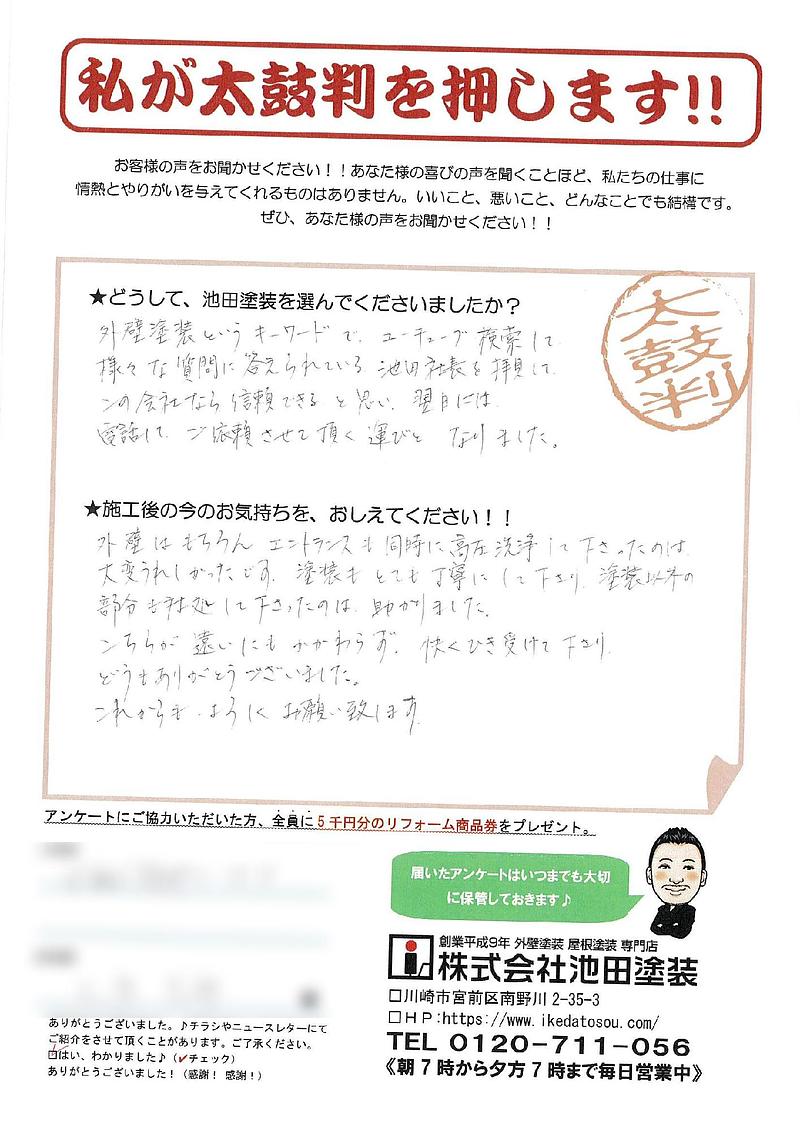 私が太鼓判を押します!!
お客様の声をお聞かせください！！あなた様の喜びの声を聞くことほど、私たちの仕事に
情熱とやりがいを与えてくれるものはありません。いいこと、悪いこと、どんなことでも結構です。
ぜひ、あなた様の声をお聞かせください！！
★どうして、池田塗装を選んでくださいましたか？
太鼓判
外壁塗装というキーワードで、ユーチューブ検索して
様々な質問に答えられている池田社長を拝見して
この会社なら信頼できると思い、翌日には
電話して、ご依頼させて頂く運びと なりました。
★施工後の今のお気持ちを、おしえてください！！
外壁はもちろん エントランスも同時に高圧洗浄して下さったのは
大変うれしかったです。塗装もとても丁寧にして下さり、塗装以外の
部分も対処して下さったのは、助かりました。
こちらが遠いにもかかわらず、快くひき受けて下さり
どうもありがとうございました。
これからも よろしくお願い致します
アンケートにご協力いただいた方、全員に５千円分のリフォーム商品券をプレゼント。
届いたアンケートはいつまでも大切
に保管しておきます♪
創業平成9年 外壁塗装 屋根塗装 専門店
株式会社池田塗装
□川崎市宮前区南野川 2-35-3
□ＨＰ:https://www.ikedatosou.com/
TEL 0120-711-056
《朝７時から夕方７時まで毎日営業中》
ありがとうございました。♪チラシやニュースレターにて
ご紹介をさせて頂くことがあります。ご了承ください。
□はい、わかりました♪（✓チェック）
ありがとうございました！（感謝！感謝！）